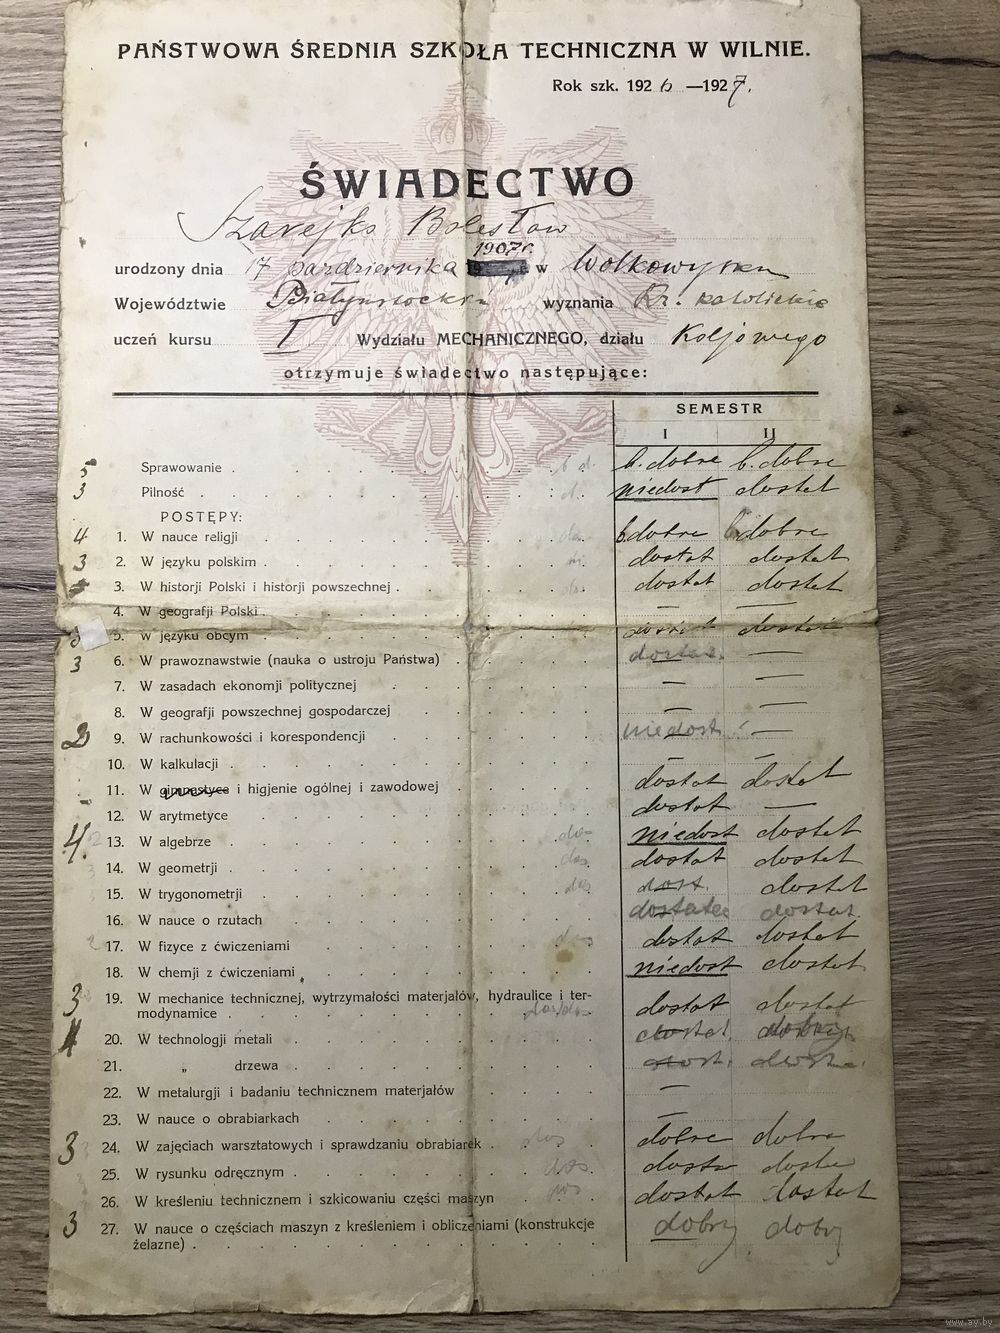 PAŃSTWOWA ŚREDNIA SZKOŁA TECHNICZNA W WILNIE.
Rok szk. 1926 —1927.
ŚWIADECTWO
Szarejko Bolesław
1907 r.
urodzony dnia 17 października w Wołkowysku
Województwie Białystockim wyznania Rz. katolickie
uczeń kursu I Wydziału MECHANICZNEGO, działu Kolejowego
otrzymuje świadectwo następujące:
SEMESTR
I II
5 Sprawowanie b. dobre b. dobre
3 Pilność niedost dostat
POSTĘPY:
4 1. W nauce religji b. dobre b. dobre
3 2. W języku polskim dostat dostat
3. W historji Polski i historji powszechnej dostat dostat
4. W geografji Polski — —
3 5. W języku obcym dostat
3 6. W prawoznawstwie (nauka o ustroju Państwa) —
7. W zasadach ekonomji politycznej — —
8. W geografji powszechnej gospodarczej — —
2 9. W rachunkowości i korespondencji niedost. —
10. W kalkulacji — —
11. W gimnastyce i higjenie ogólnej i zawodowej dostat dostat
12. W arytmetyce dostat —
4. 13. W algebrze niedost dostat
14. W geometrji dostat dostat
15. W trygonometrji dost. dostat
16. W nauce o rzutach dostat.
17. W fizyce z ćwiczeniami dostat dostat
18. W chemji z ćwiczeniami niedost dostat
3 19. W mechanice technicznej, wytrzymałości materjałów, hydraulice i ter-
modynamice dostat dostat
20. W technologji metali dostat.
21. „ drzewa dost.
22. W metalurgji i badaniu technicznem materjałów —
23. W nauce o obrabiarkach —
3 24. W zajęciach warsztatowych i sprawdzaniu obrabiarek dobre dobre
25. W rysunku odręcznym
26. W kreśleniu technicznem i szkicowaniu części maszyn dostat dostat
3 27. W nauce o częściach maszyn z kreśleniem i obliczeniami (konstrukcje
żelazne) dobry dobry
www.ay.by